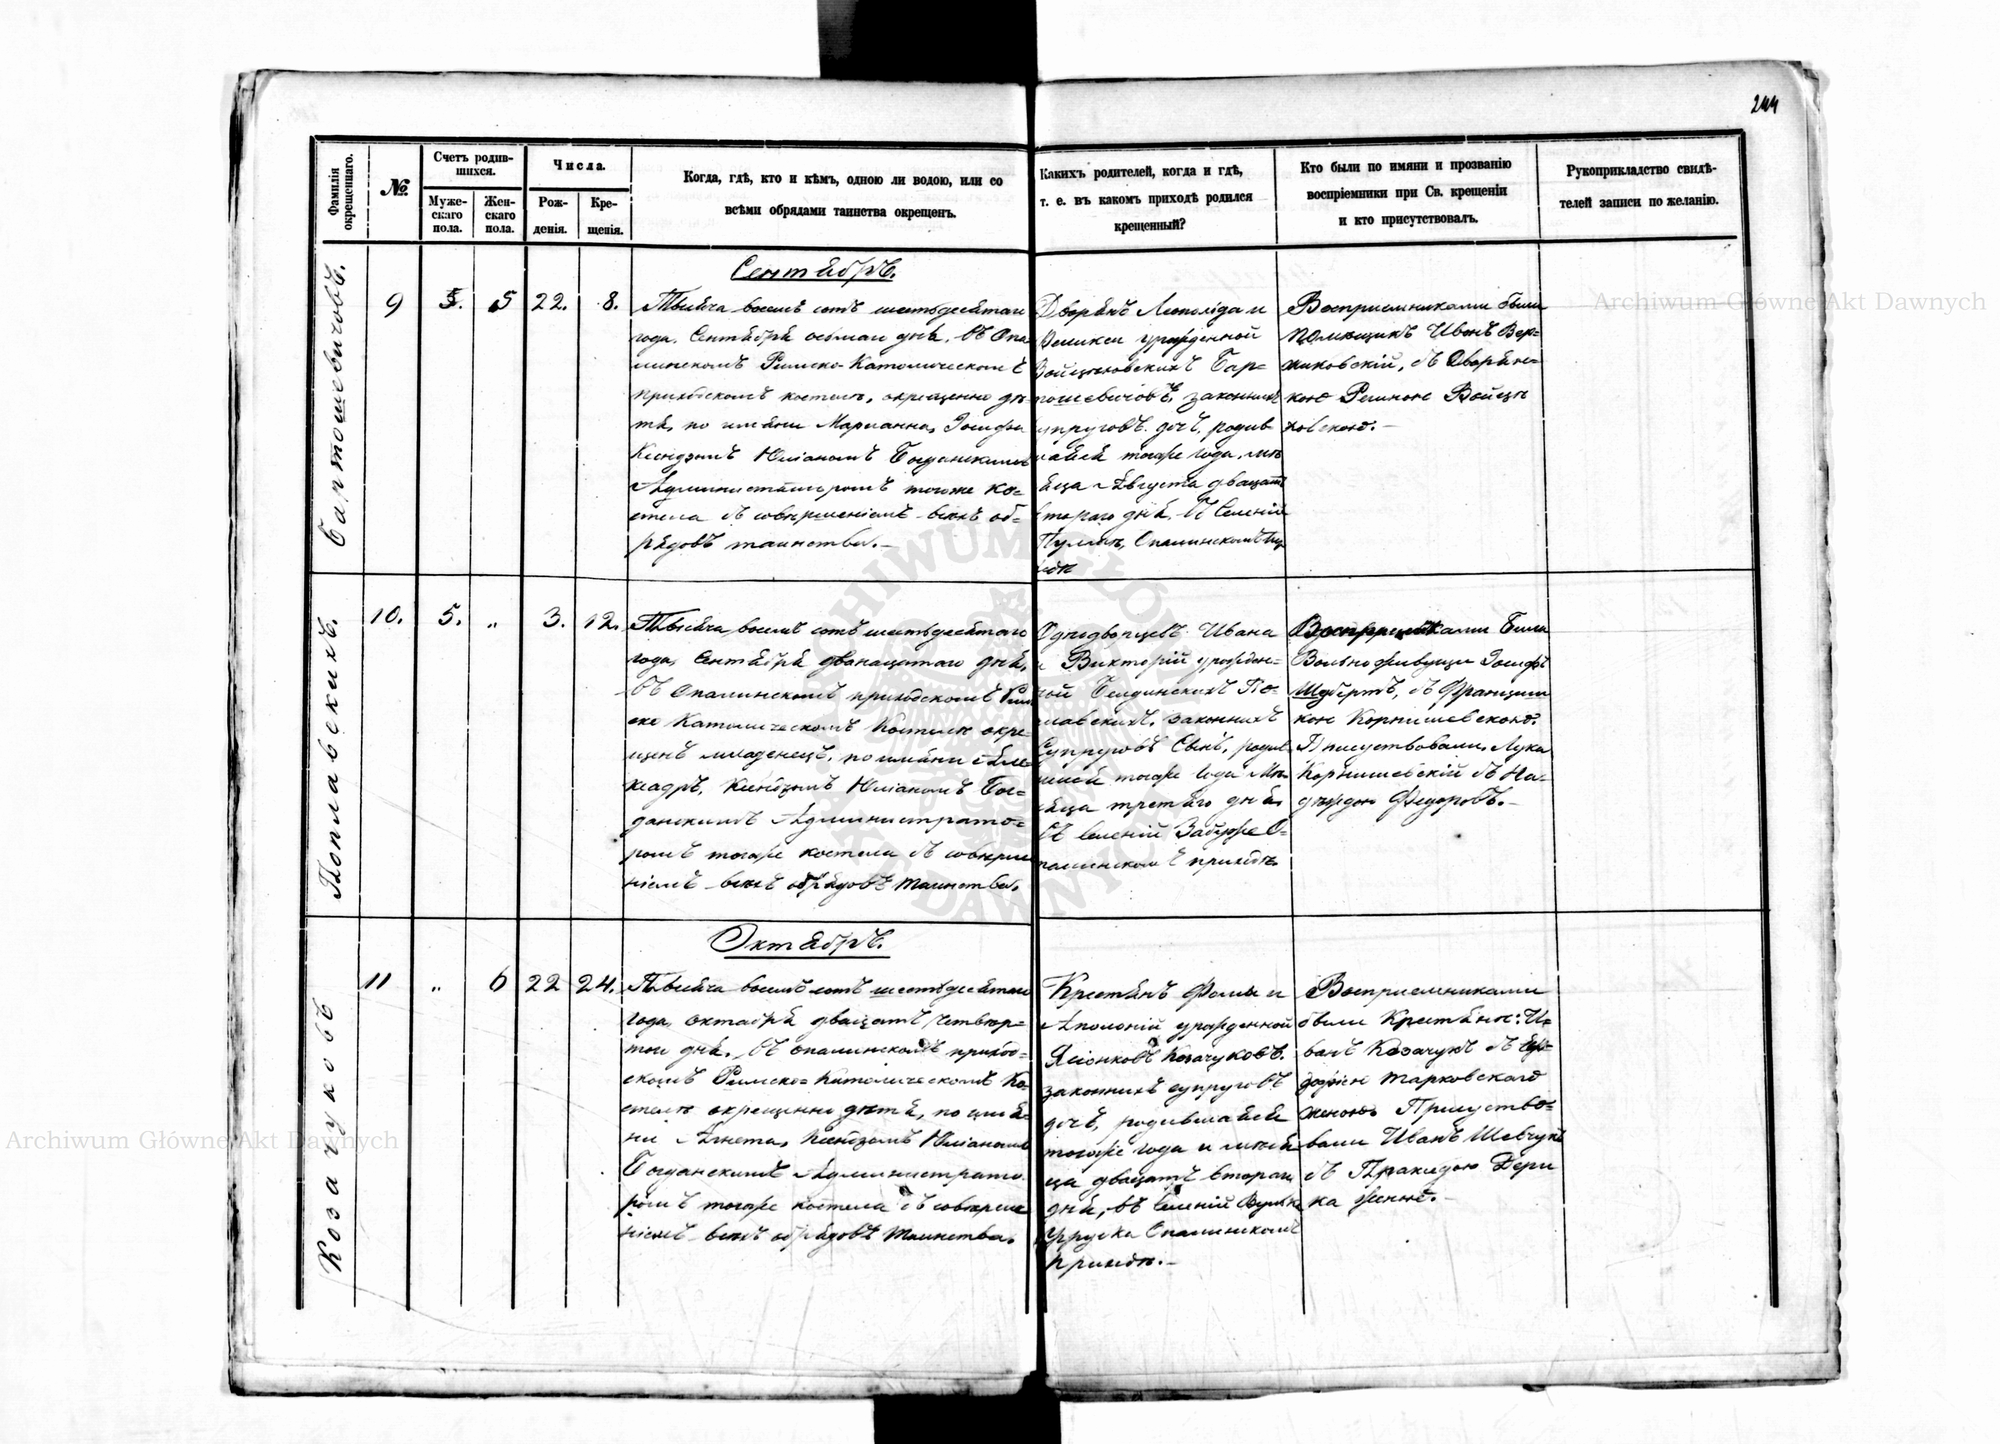 244
Фамилія окрещеннаго.
№
Счетъ родив-
шихся.
Муже-
скаго
пола.
Жен-
скаго
пола.
Числа.
Рож-
денія.
Кре-
щенія.
Когда, гдѣ, кто и кѣмъ, одною ли водою, или со
всѣми обрядами таинства окрещенъ.
Какихъ родителей, когда и гдѣ,
т. е. въ какомъ приходѣ родился
крещенный?
Кто были по имяни и прозванію
воспріемники при Св. крещеніи
и кто присутствовалъ.
Рукоприкладство свидѣ-
телей записи по желанію.
Сентябрь.
Бартошевичовъ.
9
5
22.
8.
Тысяча восемъ сотъ шестьдесятаго
года, Сентября осьмаго дня, въ Опа
линскомъ Римско-Католическомъ
приходскомъ костелѣ, окрещенно дѣ-
тя, по имяни Марианна, Іозефа
Ксіондзомъ Юліаномъ Богданскимъ
Администаторомъ тогоже ко-
стела съ совершеніемъ всѣхъ об-
рядовъ таинства.—
Дворянъ Леопольда и
Феликси урожденной
Войцѣховскихъ Бар-
тошевичовъ, законныхъ
супруговъ дочь, родив
шаяся тогоже года, мѣ
сяца Августа двацать
втораго дня, въ селеніи
Опалинскомъ при
ходѣ
Восприемниками были
Помѣщикъ Иванъ Вер-
жиковскій, съ Дворян-
кою Войцѣ
ховскою.—
Поплавскихъ.
10.
5.
"
3.
12.
Тысяча восемъ сотъ шестьдесятаго
года, Сентября двѣнацатаго дня,
въ Опалинскомъ приходскомъ Рим
ско Католическомъ Костелѣ окре-
щенъ младенецъ, по имяни Алек
Ксіондзомъ Юліаномъ Бог-
данскимъ Администрато-
ромъ тогоже костела съ соверше
ніемъ всѣхъ обрядовъ таинства.
Однодворцевъ Ивана
и Викторіи урожден-
ной По-
плавскихъ, законныхъ
Супруговъ Сынъ, родив
шійся тогоже года Мѣ-
сяца третяго дня
въ селеніи Забужже О-
палинскомъ приходѣ.
Восприемниками были
Вольно живущи Іозефъ
Шубертъ, съ Францишкою
Корнишевскою.
Присуствовали, Лука
Корнишевскій съ На-
дѣждою Федоровъ.—
Октябрь.
Козачуковъ
11
"
6
22
24.
Тысяча восемъ сотъ шестьдесятаго
года, октабря двацать четвер-
того дня, въ опалинскомъ приход-
скомъ Римско-Католическомъ Ко-
стелѣ окрещенно дѣтя, по имя-
ни Агнета, Ксіондзомъ Юліаномъ
Богданскимъ Администрато
ромъ тогоже костела съ соверше
ніемъ всѣхъ обрядовъ таинства.
Крестянъ Фомы и
Аполоніи урожденной
Ясіонковъ Козачуковъ
законныхъ супруговъ
дочь, родившаяся
тогоже года и мѣся
ца двацать втораго
дня, въ селеніи Вулька
Угруска Опалинскомъ
приходѣ.—
Восприемниками
были Крестяне: И-
ванъ Козачукъ съ
Марковского
женою Присуство-
вали Иванъ Шевчукъ
съ Пракседою Дери
ка женою.—
Archiwum Główne Akt Dawnych
Archiwum Główne Akt Dawnych
ARCHIWUM GŁÓWNE AKT DAWNYCH